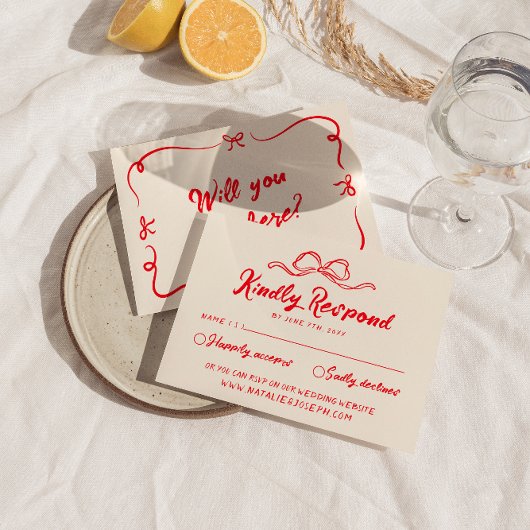 Will you
here?
Kindly Respond
BY JUNE 7TH, 20XX
NAME(S)
Happily accepts
Sadly declines
OR YOU CAN RSVP ON OUR WEDDING WEBSITE
WWW.NATALIE&JOSEPH.COM